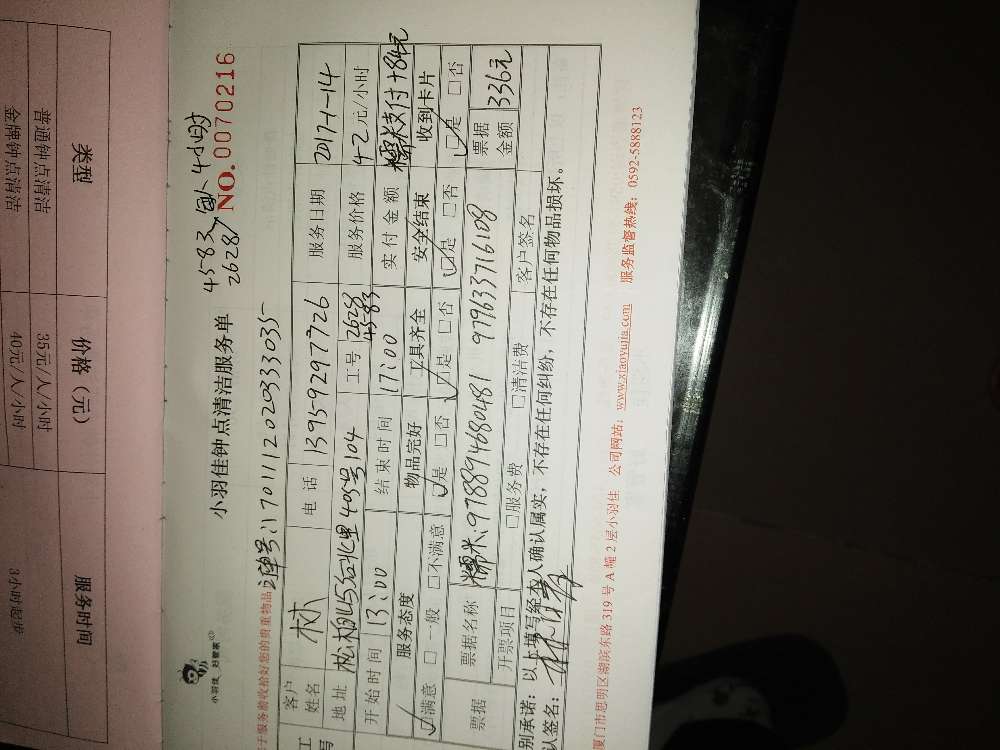 类型
价格（元）
服务时间
普通钟点清洁
35元/人/小时
金牌钟点清洁
40元/人/小时
3小时起步
小羽佳 好管家
小羽佳钟点清洁服务单
4583
2628
4小时
NO.0070216
订单号:1701111202933035
客户姓名
林
电话
13959297726
服务日期
2017-1-14
地址
工号
2628
4583
服务价格
42元/小时
开始时间
13:00
结束时间
17:00
实付金额
糯米支付+84元
服务态度
物品完好
工具齐全
安全结束
收到卡片
☑满意 □一般 □不满意
☑是 □否
☑是 □否
☑是 □否
☑是 □否
票据
票据名称
糯米:978894680481 979633716108
票据金额
336元
开票项目
□服务费
□清洁费
客户签名
别承诺：以上填写经本人确认属实，不存在任何纠纷，不存在任何物品损坏。
认签名：
厦门市思明区湖滨东路319号A幢2层小羽佳 公司网站：www.xiaoyujia.com 服务监督热线：0592-5888123